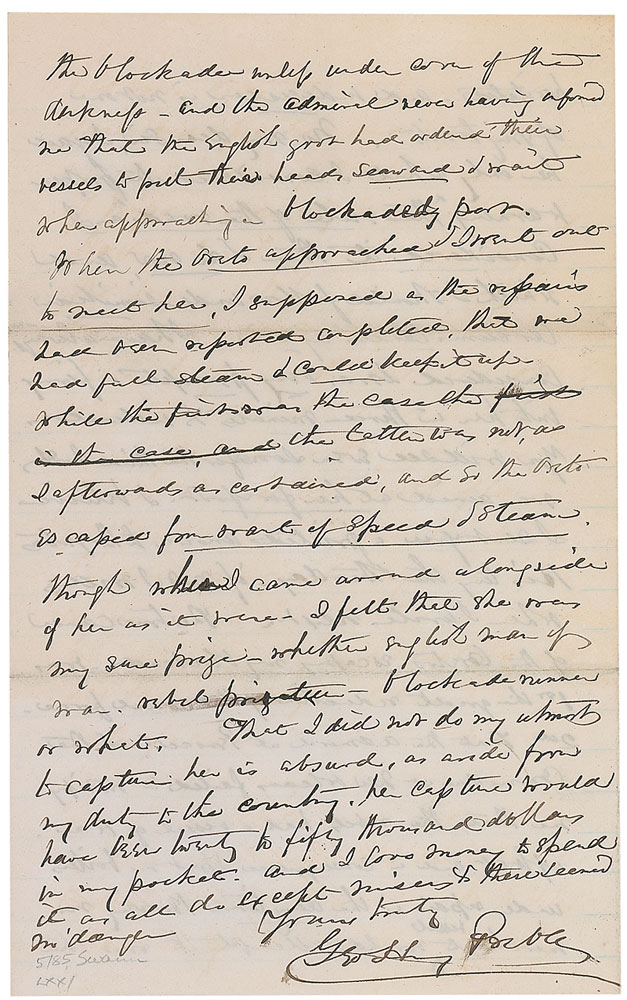 the blockade unless under cover of the
darkness - and the admiral never having informed
me that the English govt had ordered their
vessels to put their heads seaward & wait
when approaching a blockaded port.
When the Oreto approached & I went out
to meet her, I supposed as the repairs
had been reported completed, that we
had full steam & could keep it up
while the first was the case the first
is the case, and the latter was not, as
I afterwards ascertained, and so the Oreto
escaped from want of speed & steam.
though when I came around alongside
of her as it were - I felt that she was
my sure prize - whether english man of
war - rebel privateer - blockade runner
or what. That I did not do my utmost
to capture her is absurd, as aside from
my duty to the country, her capture would
have been twenty to fifty thousand dollars
in my pocket - and I love money to spend
it as all do except misers & there seemed
no danger
Yours truly
Geo H Preble
5/85, Swann
LXX/